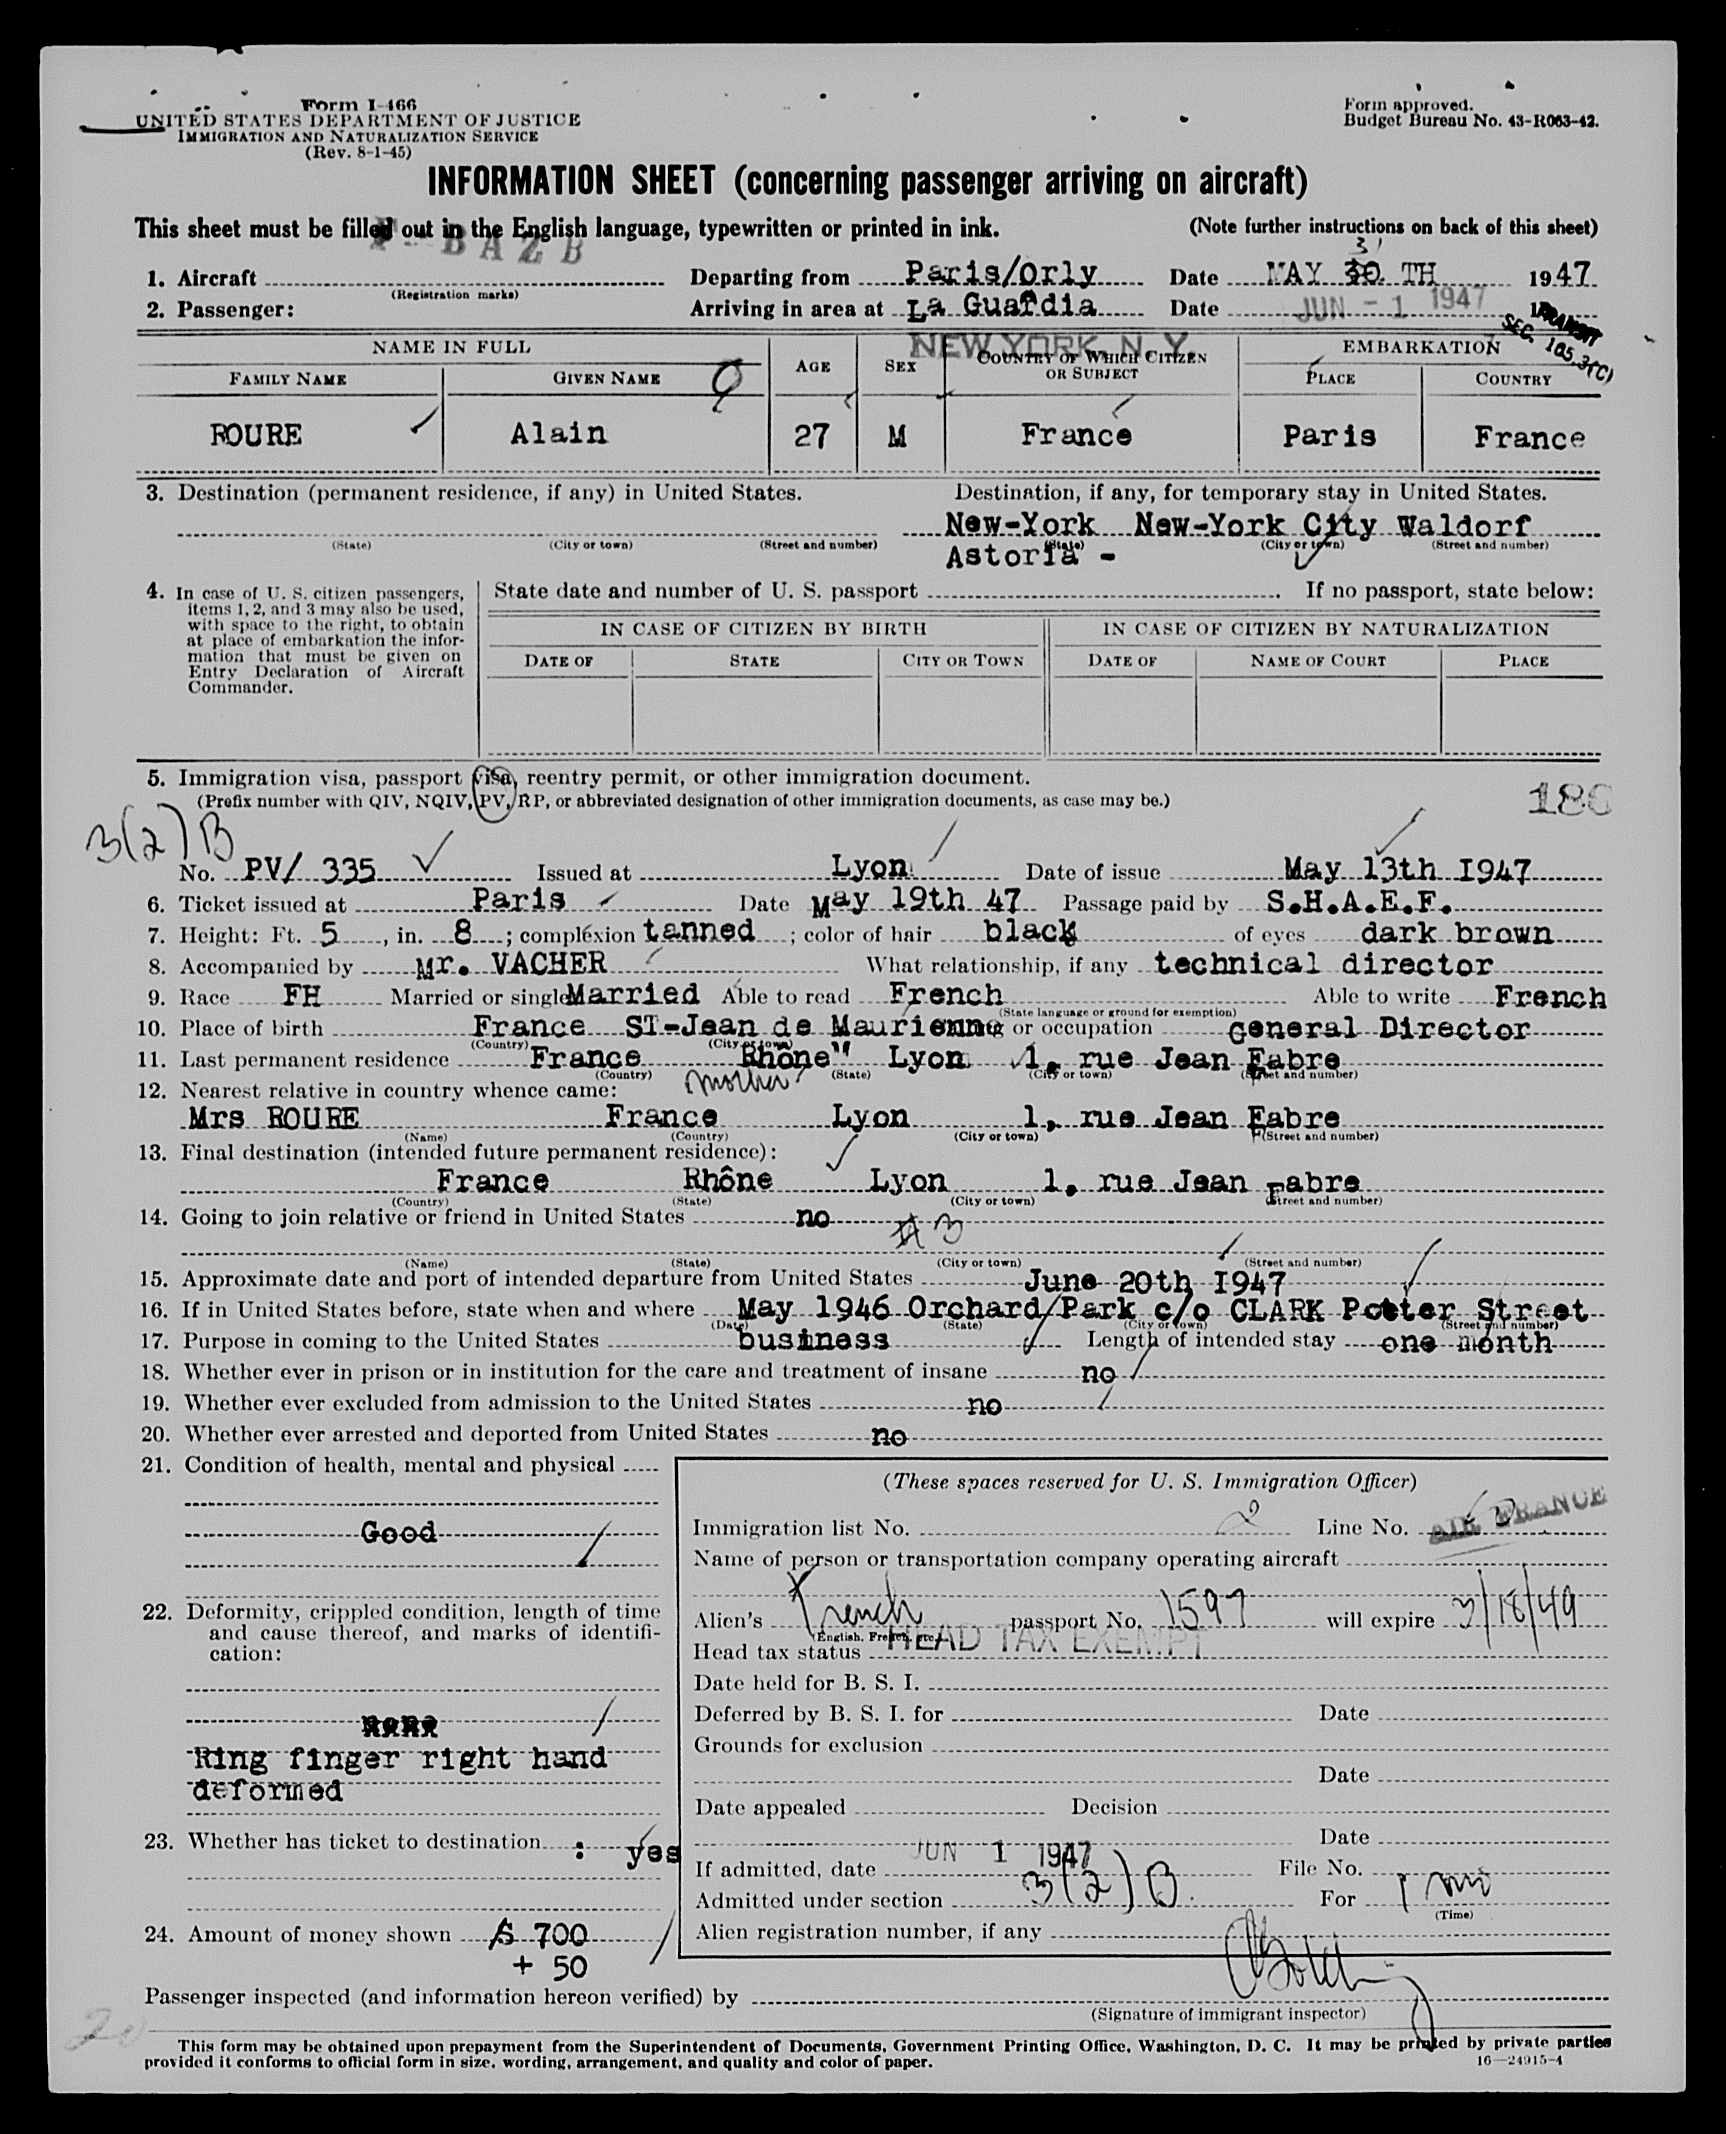 Form I-466
UNITED STATES DEPARTMENT OF JUSTICE
IMMIGRATION AND NATURALIZATION SERVICE
(Rev. 8-1-45)
Form approved.
Budget Bureau No. 43-R063-42.
INFORMATION SHEET (concerning passenger arriving on aircraft)
This sheet must be filled out in the English language, typewritten or printed in ink. (Note further instructions on back of this sheet)
F-BAZB
1. Aircraft (Registration marks) Departing from Paris/Orly Date MAY 30 31 TH 1947
2. Passenger: Arriving in area at La Guardia Date JUN - 1 1947
NEW YORK N. Y.
TRANSIT
SEC. 165.3(C)
NAME IN FULL AGE SEX COUNTRY OF WHICH CITIZEN OR SUBJECT EMBARKATION
FAMILY NAME GIVEN NAME PLACE COUNTRY
ROURE Alain 27 M France Paris France
3. Destination (permanent residence, if any) in United States. Destination, if any, for temporary stay in United States.
New-York New-York City Waldorf
(State) (City or town) (Street and number) (State) (City or town) (Street and number)
Astoria -
4. In case of U. S. citizen passengers, items 1, 2, and 3 may also be used, with space to the right, to obtain at place of embarkation the information that must be given on Entry Declaration of Aircraft Commander.
State date and number of U. S. passport If no passport, state below:
IN CASE OF CITIZEN BY BIRTH IN CASE OF CITIZEN BY NATURALIZATION
DATE OF STATE CITY OR TOWN DATE OF NAME OF COURT PLACE
5. Immigration visa, passport visa, reentry permit, or other immigration document.
(Prefix number with QIV, NQIV, PV, RP, or abbreviated designation of other immigration documents, as case may be.)
3(2)B
No. PV/ 335 Issued at Lyon Date of issue May 13th 1947
6. Ticket issued at Paris Date May 19th 47 Passage paid by S.H.A.E.F.
7. Height: Ft. 5, in. 8; complexion tanned; color of hair black of eyes dark brown
8. Accompanied by Mr. VACHER What relationship, if any technical director
9. Race FH Married or single Married Able to read French Able to write French
(State language or ground for exemption)
10. Place of birth France ST-Jean de Maurienne or occupation General Director
(Country) (City or town)
11. Last permanent residence France Rhône" Lyon 1, rue Jean Fabre
(Country) (State) (City or town) (Street and number)
12. Nearest relative in country whence came: mother
Mrs ROURE France Lyon 1, rue Jean Fabre
(Name) (Country) (City or town) (Street and number)
13. Final destination (intended future permanent residence):
France Rhône Lyon 1, rue Jean Fabre
(Country) (State) (City or town) (Street and number)
14. Going to join relative or friend in United States no
#3
(Name) (State) (City or town) (Street and number)
15. Approximate date and port of intended departure from United States June 20th 1947
16. If in United States before, state when and where May 1946 Orchard Park c/o CLARK Potter Street
(Date) (State) (City or town) (Street and number)
17. Purpose in coming to the United States business Length of intended stay one month
18. Whether ever in prison or in institution for the care and treatment of insane no
19. Whether ever excluded from admission to the United States no
20. Whether ever arrested and deported from United States no
21. Condition of health, mental and physical
Good
22. Deformity, crippled condition, length of time and cause thereof, and marks of identification:
none
Ring finger right hand
deformed
23. Whether has ticket to destination : yes
24. Amount of money shown $ 700
+ 50
(These spaces reserved for U. S. Immigration Officer)
Immigration list No. 2 Line No.
AIR FRANCE
Name of person or transportation company operating aircraft
Alien's French passport No. 1597 will expire 3/18/49
(English, French, etc.)
Head tax status HEAD TAX EXEMPT
Date held for B. S. I.
Deferred by B. S. I. for Date
Grounds for exclusion
Date
Date appealed Decision
Date
If admitted, date JUN 1 1947 File No.
Admitted under section 3(2)B. For 1 mo
(Time)
Alien registration number, if any
Passenger inspected (and information hereon verified) by
(Signature of immigrant inspector)
20
This form may be obtained upon prepayment from the Superintendent of Documents, Government Printing Office, Washington, D. C. It may be printed by private parties
provided it conforms to official form in size, wording, arrangement, and quality and color of paper.
16—24915-4